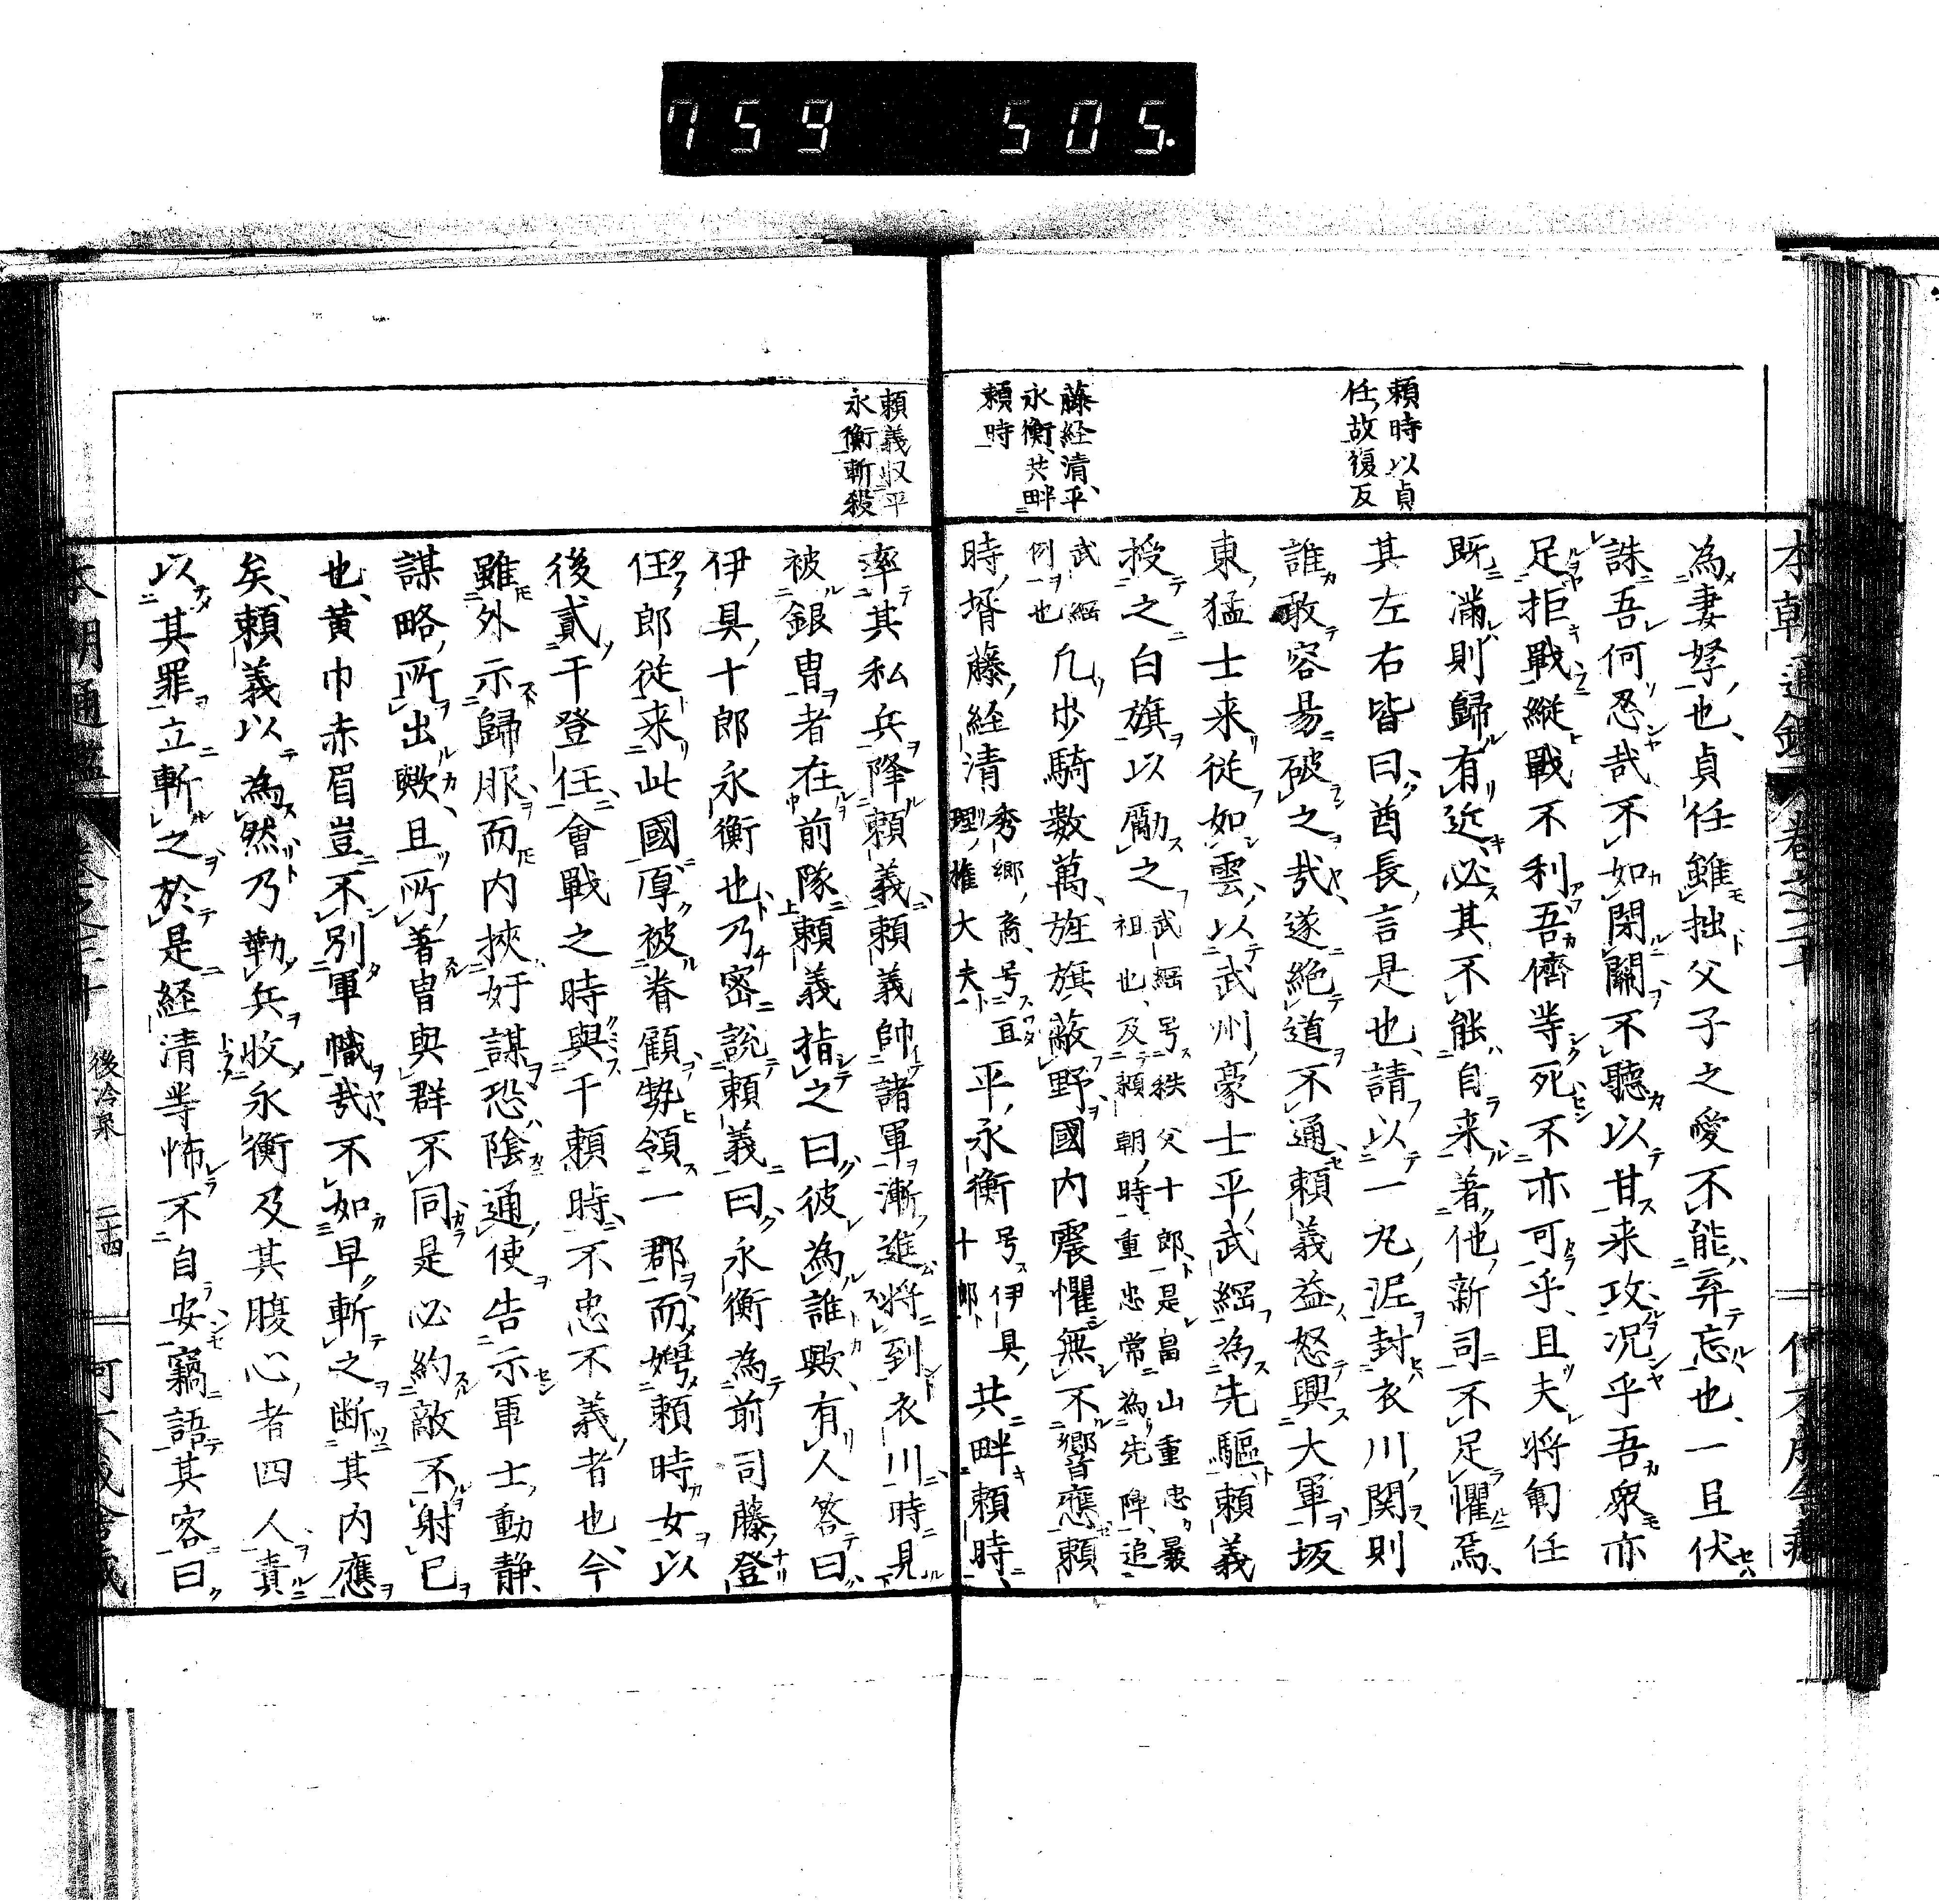 759 505.
頼時以貞
任故復反
藤経清平
永衡共畔
頼時
為妻孥也貞任雖拙父子之愛不能弃忘也一旦伏
誅吾何忍哉不如閉關不聽以甘来攻况乎吾衆亦
足拒戰縦戰不利吾儕等死不亦可乎且夫将軍任
既満則歸有近必其不能自来着他新司不足懼焉
其左右皆曰酋長言是也請以一丸泥封衣川関則
誰敢容易破之哉遂絶道不通頼義益怒興大軍坂
東猛士来従如雲以武州豪士平武綱為先驅頼義
授之白旗以勵之武綱号秩父十郎是畠山重忠最
祖也及頼朝時重忠常為先陣追
武綱
例也
凡歩騎數萬旌旗蔽野國内震懼無不響應頼
時壻藤経清秀郷裔号亘
理権大夫
平永衡号伊具
十郎
共畔頼時
頼義収平
永衡斬殺
率其私兵降頼義頼義帥諸軍漸進将到衣川時見
被銀冑者在前隊頼義指之曰彼為誰歟有人答曰
伊具十郎永衡也乃密説頼義曰永衡為前司藤登
任郎従来此國厚被眷顧勢領一郡而娉頼時女以
後貳于登任會戰之時與于頼時不忠不義者也今
雖外示歸服而内挾奸謀恐陰通使告示軍士動静
謀略所出歟且所着冑與群不同是必約敵不射已
也黄巾赤眉豈不別軍幟哉不如早斬之断其内應
矣頼義以為然乃勒兵收永衡及其腹心者四人責
以其罪立斬之於是経清等怖不自安竊語其客曰
本朝通鑑
後冷泉 二十四